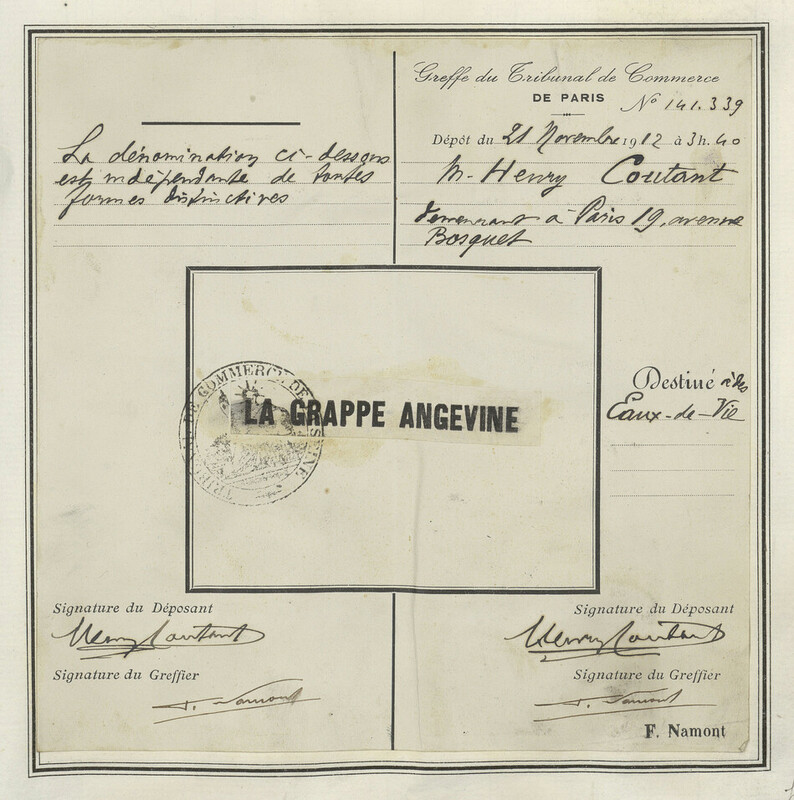 Greffe du Tribunal de Commerce
DE PARIS
N° 141.339
Dépôt du 21 Novembre 1912 à 3h. 40
M. Henry Coutant
demeurant à Paris 19, avenue
Bosquet
La dénomination ci-dessous
est indépendante de toutes
formes distinctives
LA GRAPPE ANGEVINE
TRIBUNAL DE COMMERCE DE LA SEINE
Destiné à des
Eaux-de-Vie
Signature du Déposant
Henry Coutant
Signature du Greffier
F. Namont
Signature du Déposant
Henry Coutant
Signature du Greffier
F. Namont
F. Namont